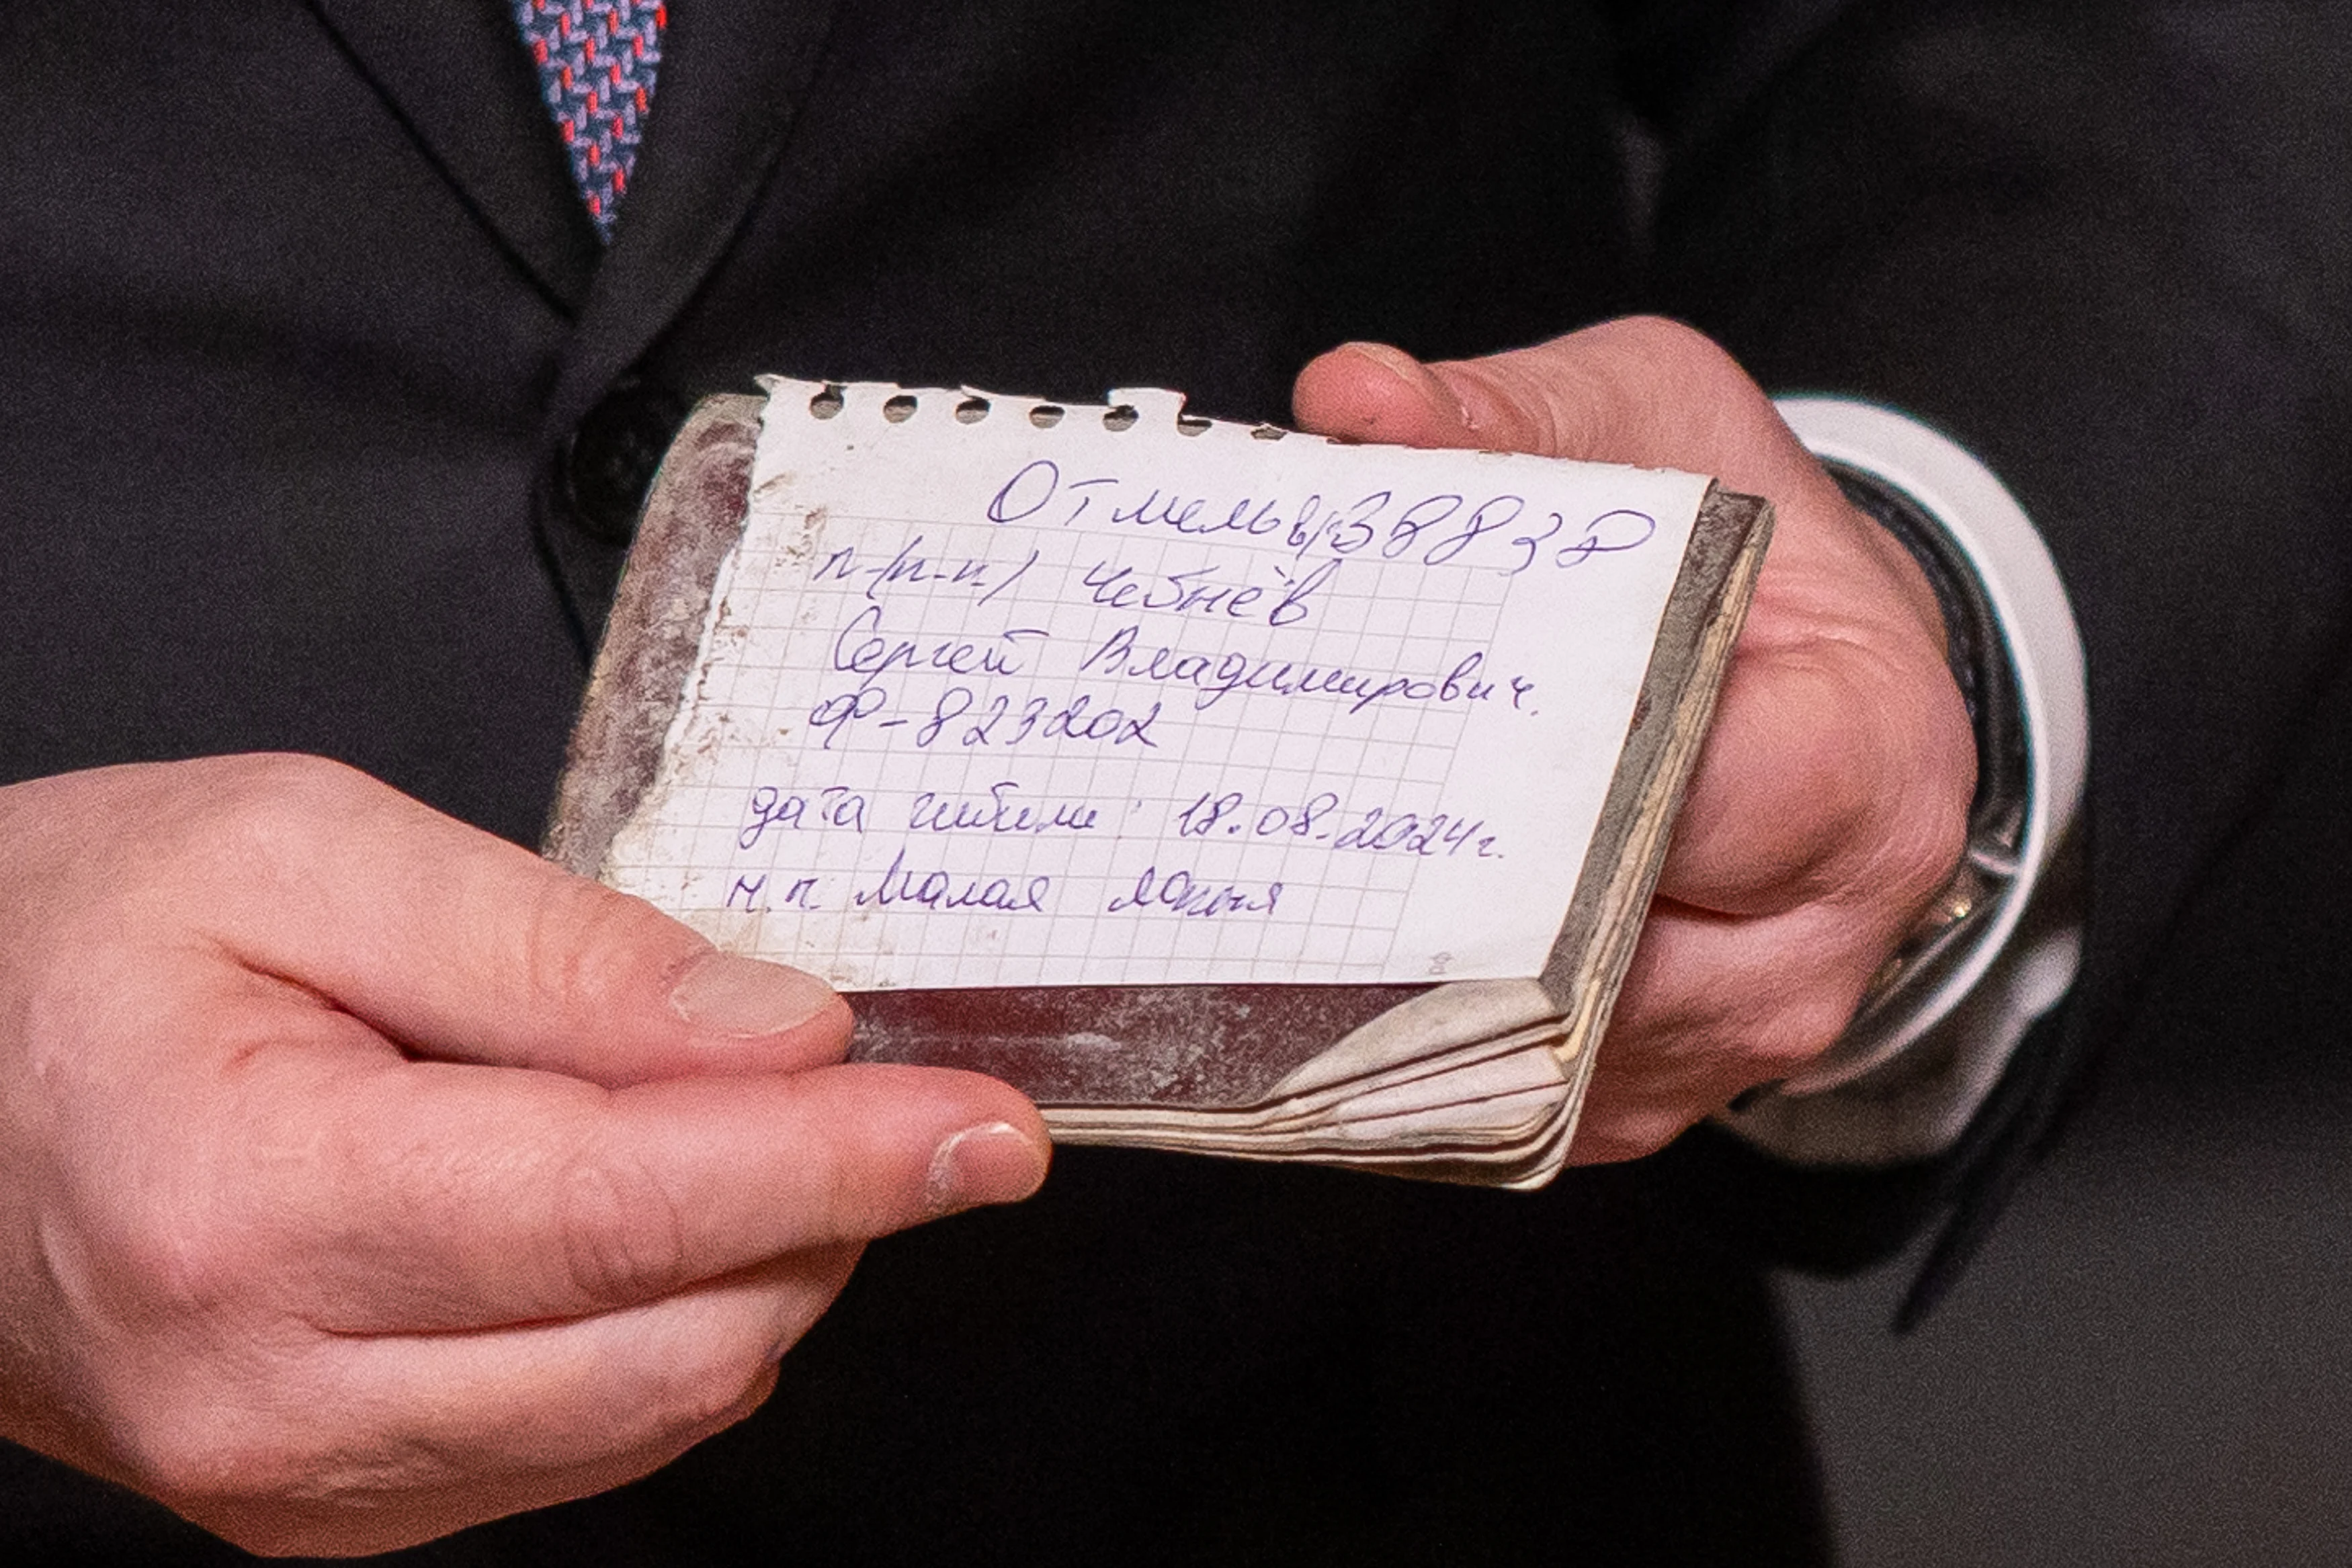 Отмель в/ч 3 8 8 3 7
п-(п-п) Чебнёв
Сергей Владимирович.
Ф-823202
дата гибели: 18.08.2024г.
н.п. Малая Локня